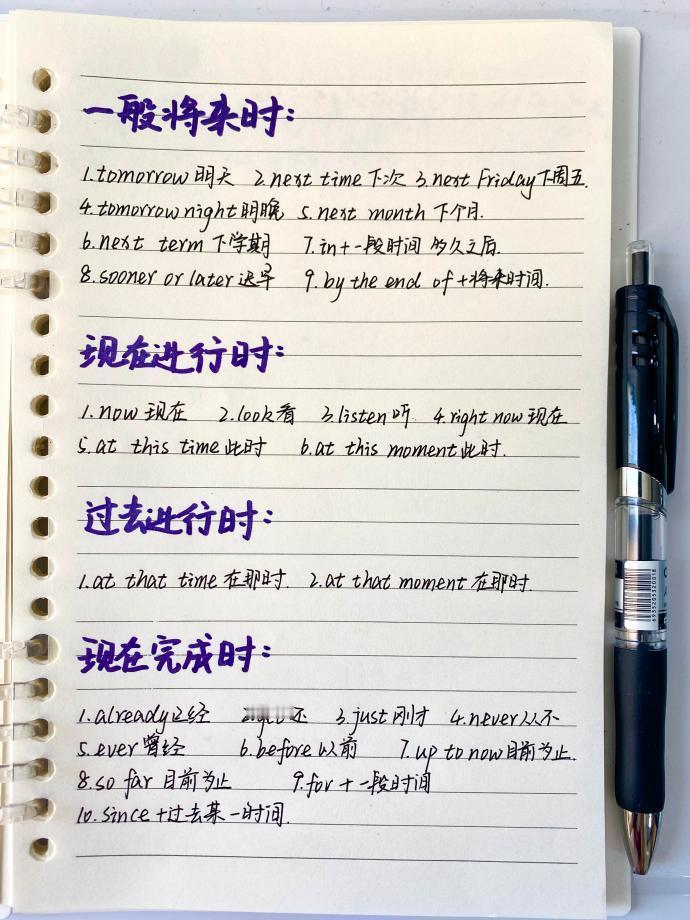 一般将来时:
1.tomorrow 明天 2.next time 下次 3.next Friday 下周五.
4.tomorrow night 明晚 5.next month 下个月.
6.next term 下学期 7.in+一段时间 多久之后.
8.sooner or later 迟早 9.by the end of +将来时间.
现在进行时:
1.now 现在 2.look 看 3.listen 听 4.right now 现在
5.at this time 此时 6.at this moment 此时.
过去进行时:
1.at that time 在那时. 2.at that moment 在那时.
现在完成时:
1.already 已经 还 3.just 刚才 4.never 从不
5.ever 曾经 6.before 以前 7.up to now 目前为止.
8.so far 目前为止 9.for +一段时间
10.since +过去某一时间.
6935205320018